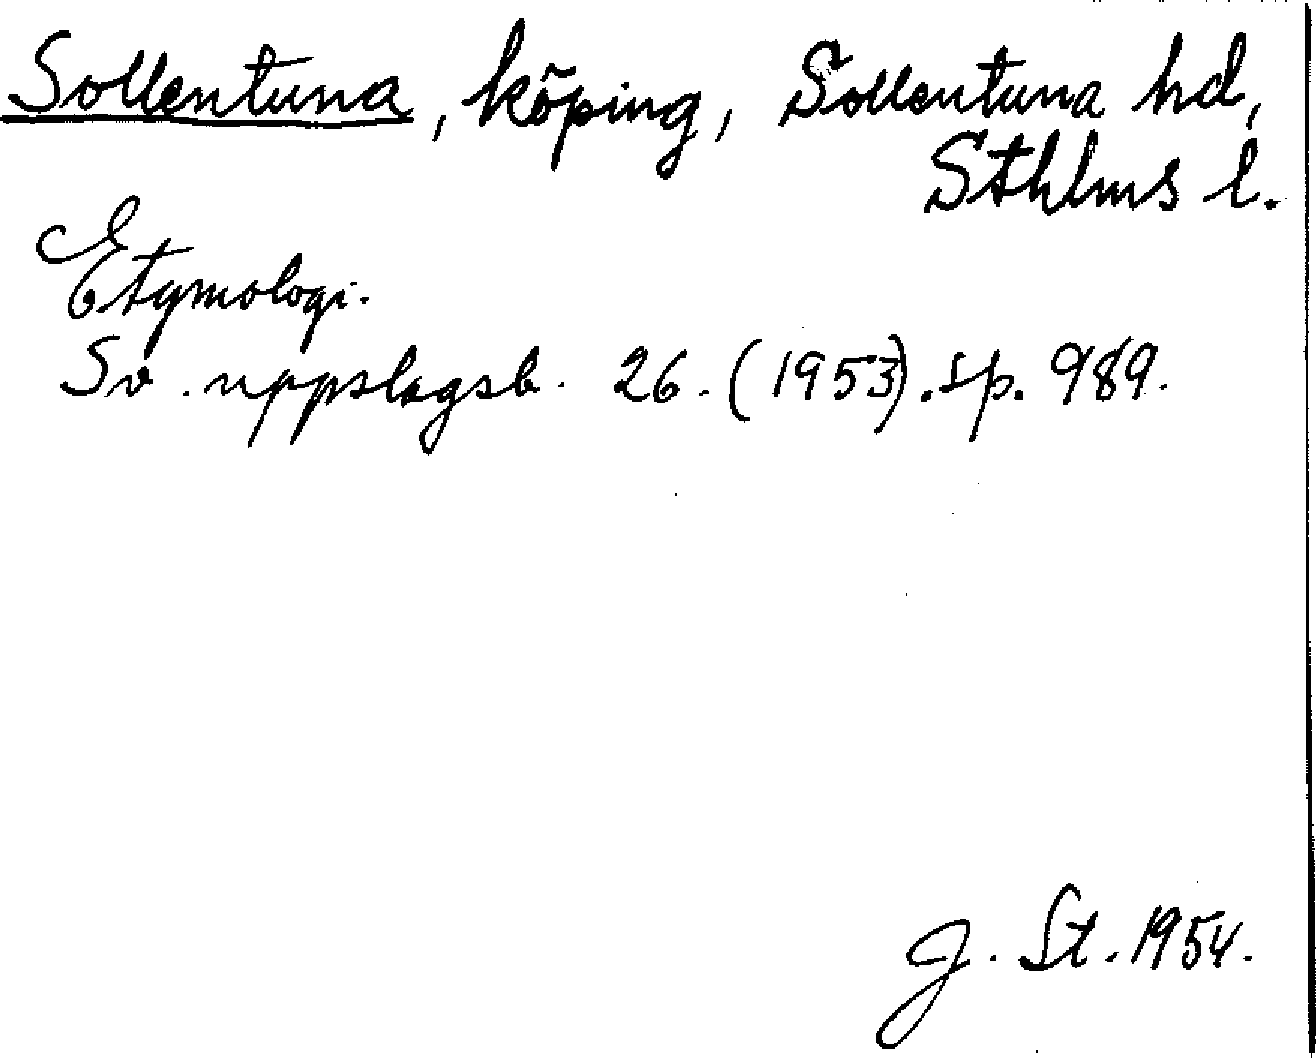 Sollentuna, köping, Sollentuna hd,
Sthlms l.
Etymologi.
Sv. uppslagsb. 26. (1953). sp. 989.
J. St. 1954.